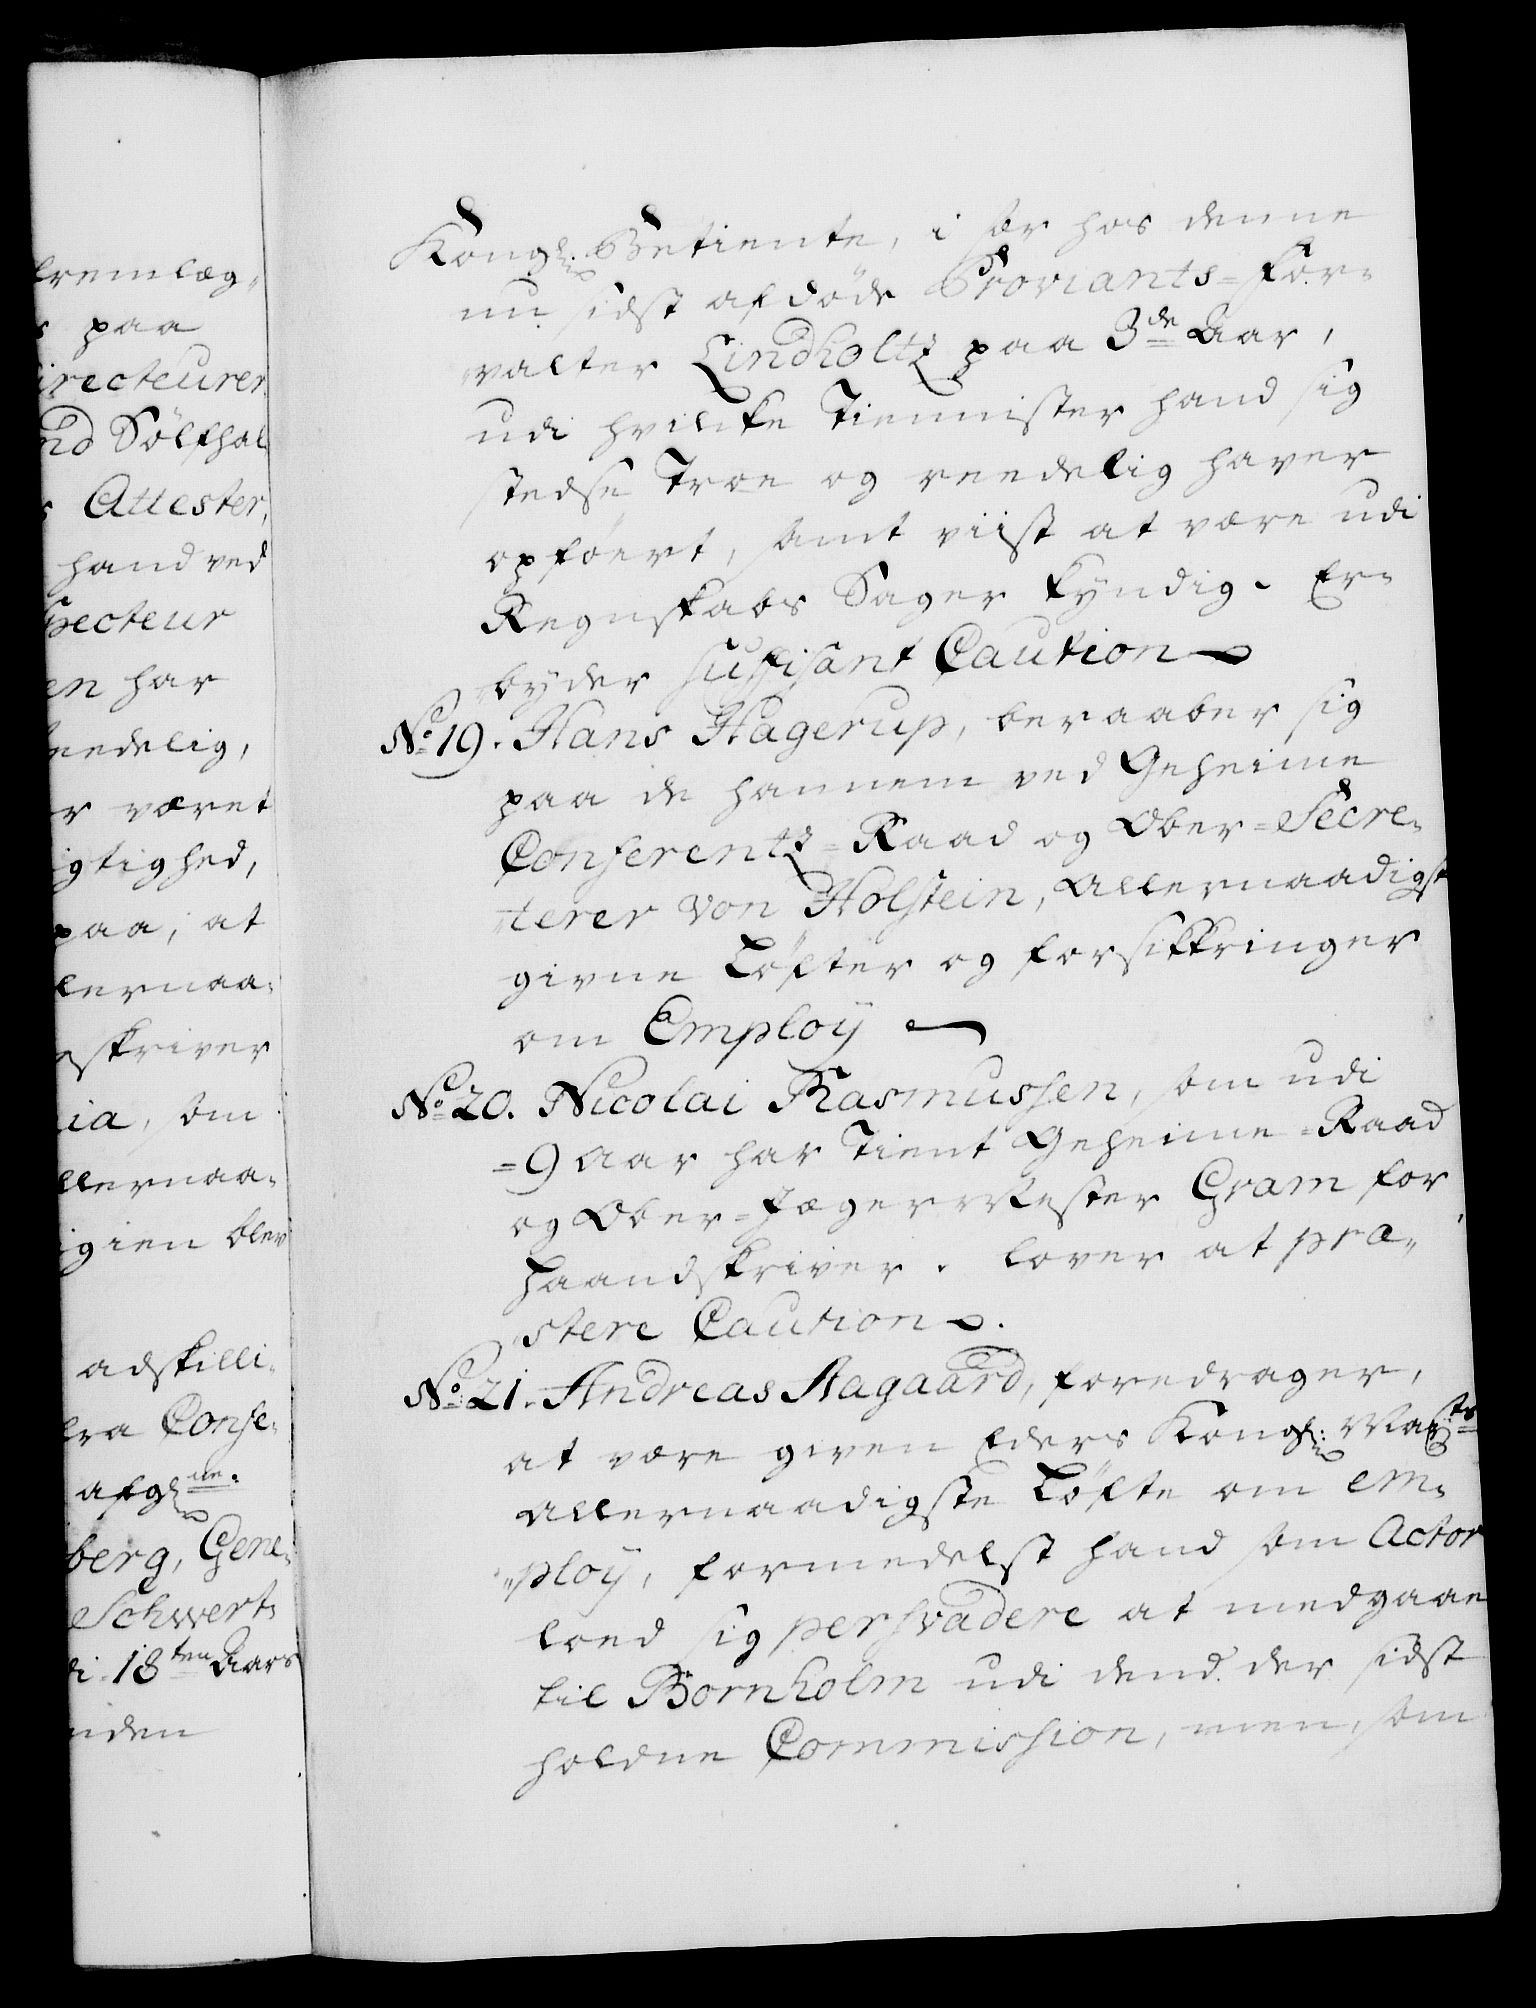 fremlæg„
paa
irecteurer
nd Sölfhal„
Attester,
hand ved
specteur
en har
eedelig,
r været
igtighed,
paa, at
llernaa„
skriver
ia, som
llernaa„
igien blev
adskilli„
fra Confe„
afgl. ne.
berg, Gene„
Schwert„
di 18ten Aars
nden
Kongl: Betiente, i sær hos denne
nu sidst afdöde Proviants=For„
„valter Lindholtz paa 3de Aar,
udi hvilcke Tiennister hand sig
stedse Troe og reedelig haver
opföert, samt viist at være udi
Regnskabs Sager kyndig. Er„
„byder suffisant Caution
No. 19. Hans Hagerup, beraaber sig
paa de hannem ved Geheime
Conferentz=Raad og Ober=Secre„
„terer von Holstein, Allernaadigst
givne Löfter og forsikkringer
om Employ
No. 20. Nicolai Rasmussen, som udi
=9 Aar har Tient Geheime=Raad
og Ober=Jægermester Gram for
haandskriver. lover at præ„
„stere Caution.
No. 21. Andreas Aagaard, foredrager,
at være given Eders Kongl: Mayts
Allernaadigste Löfte om em„
„ploy, formedelst hand som Actor
loed sig persvadere at medgaae
til Bornholm udi dend der sidst
holdne Commission, men, som